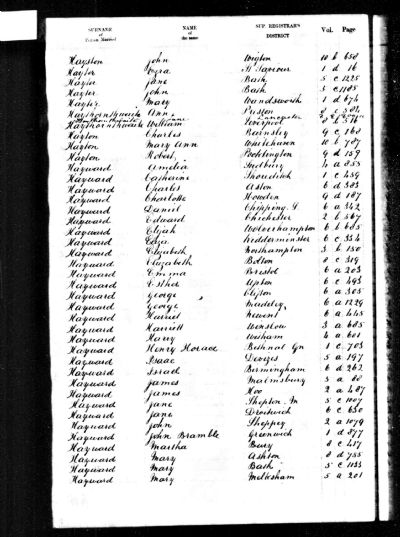 SURNAME NAME SUP. REGISTRAR'S Vol. Page
of of DISTRICT
Person Married the same
Hayston John Wigton 10 b 650
Hayter Ezra St Saviour 1 d 16
Hayter Jane Bath 5 c 1225
Hayter John Bath 5 c 1185
Hayter Mary Wandsworth 1 d 674
Haythornthwaite Ann Preston 8 e 584
Haythornthwaite William Liverpool 8 b 376
Hayton Charles Barnsley 9 c 168
Hayton Mary Ann Whitehaven 10 b 787
Hayton Robert Pocklington 9 d 159
Hayward Amelia Sudbury 4 a 855
Hayward Catherine Shoreditch 1 c 459
Hayward Charles Aston 6 d 383
Hayward Charlotte Howden 9 d 187
Hayward Daniel Chipping S. 6 a 342
Hayward Edward Chichester 2 b 567
Hayward Elijah Wolverhampton 6 b 605
Hayward Eliza Kidderminster 6 c 354
Hayward Elizabeth Northampton 3 b 150
Hayward Elizabeth Bolton 8 c 319
Hayward Emma Bristol 6 a 203
Hayward Esther Upton 6 c 493
Hayward George Clifton 6 a 305
Hayward George Madeley 6 a 1229
Hayward Harriet Newent 6 a 445
Hayward Harriett Winslow 3 a 685
Hayward Harry Witham 4 a 601
Hayward Henry Horace Bethnal Gn 1 c 703
Hayward Isaac Devizes 5 a 197
Hayward Israel Birmingham 6 d 262
Hayward James Malmsbury 5 a 60
Hayward James Hoo 2 a 487
Hayward Jane Shepton M 5 c 1107
Hayward Jane Droitwich 6 c 630
Hayward John Sheppey 2 a 1079
Hayward John Bramble Greenwich 1 d 877
Hayward Martha Bury 8 c 417
Hayward Mary Ashton 8 d 755
Hayward Mary Bath 5 c 1133
Hayward Mary Melksham 5 a 201